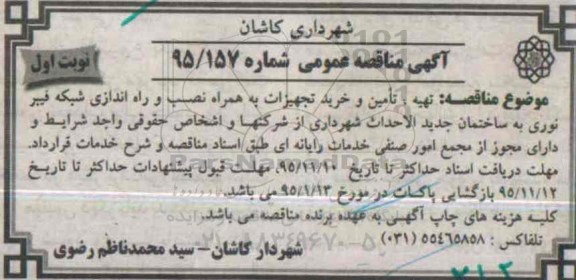 شهرداری کاشان
آگهی مناقصه عمومی شماره ۹۵/۱۵۷
نوبت اول
موضوع مناقصه: تهیه، تأمین و خرید تجهیزات به همراه نصب و راه اندازی شبکه فیبر
نوری به ساختمان جدید الاحداث شهرداری از شرکتها و اشخاص حقوقی واجد شرایط و
دارای مجوز از مجمع امور صنفی خدمات رایانه ای طبق اسناد مناقصه و شرح خدمات قرارداد.
مهلت دریافت اسناد حداکثر تا تاریخ ۹۵/۱۱/۱۰، مهلت قبول پیشنهادات حداکثر تا تاریخ
۹۵/۱۱/۱۲ بازگشایی پاکات در مورخ ۹۵/۱/۱۳ می باشد.
کلیه هزینه های چاپ آگهی به عهده برنده مناقصه می باشد.
تلفاکس : ۵۵۴۶۵۸۵۸ (۰۳۱)
شهردار کاشان – سید محمدناظم رضوی